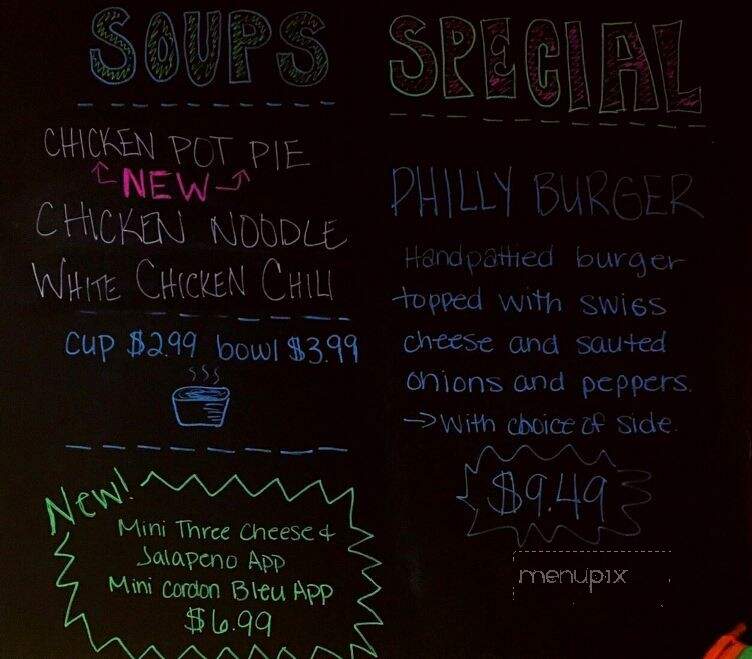 SOUPS
CHICKEN POT PIE
NEW
CHICKEN NOODLE
WHITE CHICKEN CHILI
cup $2.99 bowl $3.99
New!
Mini Three Cheese &
Jalapeno App
Mini Cordon Bleu App
$6.99
SPECIAL
PHILLY BURGER
Handpattied burger
topped with swiss
cheese and sauted
onions and peppers.
→With choice of side.
$9.49
menupix